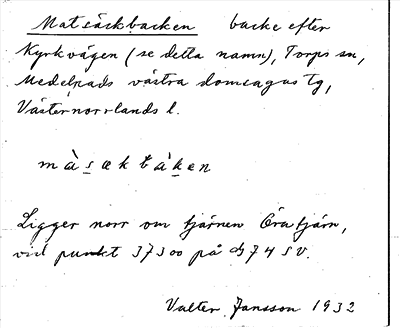 Matsäckbacken backe efter
Kyrkvägen (se detta namn), Torps sn,
Medelpads västra domsagas tg,
Västernorrlands l.
màsæktbàkæn
Ligger norr om tjärnen Öratjärn,
vid punkt 37300 på 74 SV.
Valter Jansson 1932